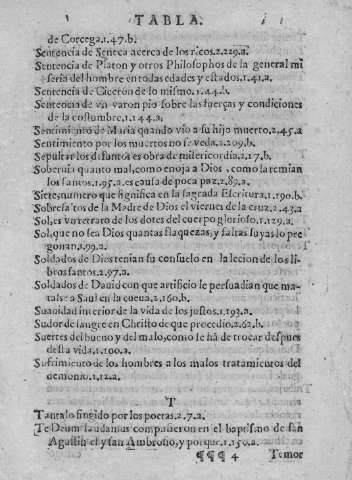 TABLA.
de Corcega.1.47.b.
Sentencia de Seneca acerca de los ricos.2.229.a.
Sentencia de Platon y otros Philosophos de la general mi
seria del hombre en todas edades y estados.1.41.a.
Sentencia de Ciceron de lo mismo.1.44.b.
Sentencia de vn varon pio sobre las fuerças y condiciones
de la costumbre.1.144.a.
Sentimiento de Maria quando vio a su hijo muerto.2.45.a
Sentimiento por los muertos no se veda.2.209.b.
Sepultar los defuntos es obra de misericordia.2.17.b.
Soberuia quanto mal, como enoja a Dios, como la temian
los santos.1.95.a.es causa de poca paz.2.89.a.
Siete, numero que significa en la sagrada Escritura.1.190.b.
Sobresaltos de la Madre de Dios el viernes de la cruz.2.43.a
Sol, es vn retrato de los dotes del cuerpo glorioso.1.129.a.
Sol, que no sea Dios quantas flaquezas, y faltas suyas lo pre
gonan.1.99.a.
Soldados de Dios tenian su consuelo en la lecion de los li
bros santos.2.97.a.
Soldados de Dauid con que artificio le persuadian que ma-
tasse a Saul en la cueua.2.160.b.
Suauidad interior de la vida de los justos.1.193.a.
Sudor de sangre en Christo de que procedio.2.62.b.
Suertes del bueno y del malo, como se há de trocar despues
desta vida.1.100.a.
Sufrimiento de los hombres a los malos tratamientos del
demonio.1.12.a.
T
Tantalo fingido por los poetas.2.7.a.
Te Deum laudamus compusieron en el baptismo de san
Agustin el y san Ambrosio, y porque.1.150.a.
¶¶¶ 4 Temor